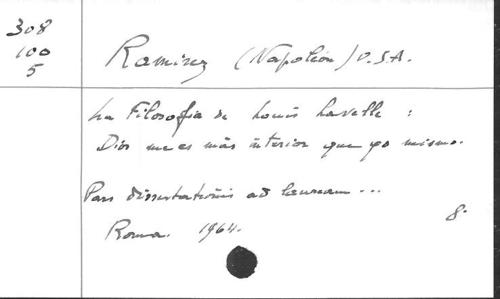 308
100
5
Ramirez (Napoleón) O.S.A.
La Filosofia de Louis Lavelle :
Dios me es más interior que yo mismo.
Pars dissertationis ad lauream ...
Roma. 1964.
8.